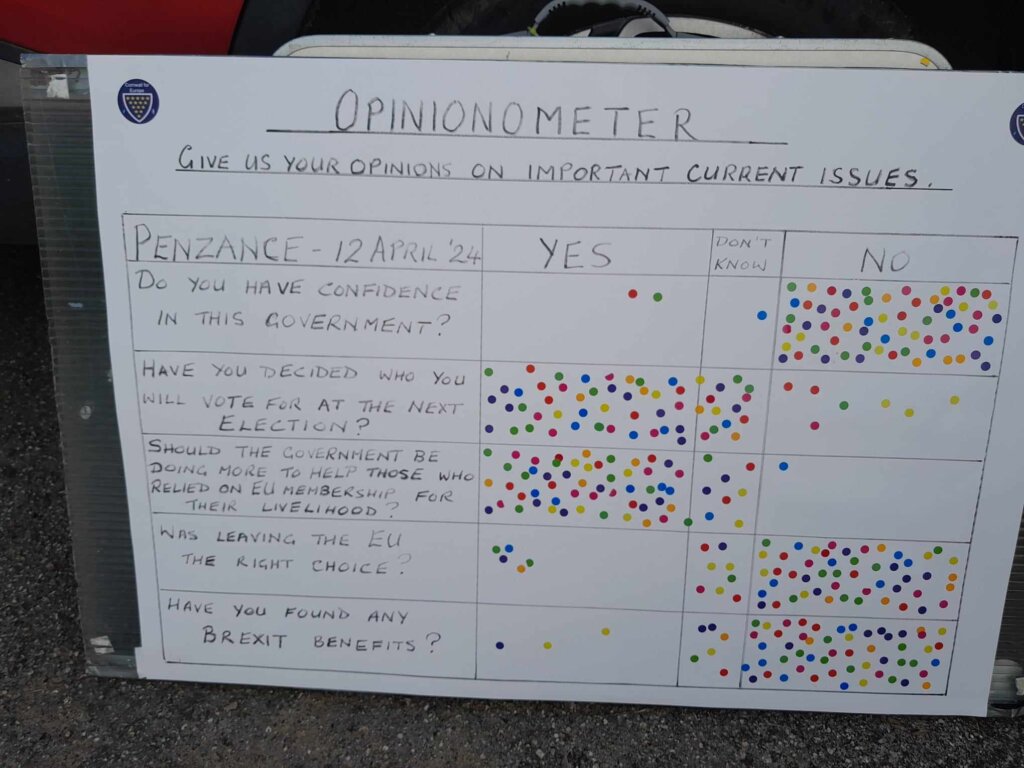 Cornwall for
Europe
OPINIONOMETER
GIVE US YOUR OPINIONS ON IMPORTANT CURRENT ISSUES.
PENZANCE - 12 APRIL '24 YES DON'T KNOW NO
DO YOU HAVE CONFIDENCE
IN THIS GOVERNMENT?
HAVE YOU DECIDED WHO YOU
WILL VOTE FOR AT THE NEXT
ELECTION?
SHOULD THE GOVERNMENT BE
DOING MORE TO HELP THOSE WHO
RELIED ON EU MEMBERSHIP FOR
THEIR LIVELIHOOD?
WAS LEAVING THE EU
THE RIGHT CHOICE?
HAVE YOU FOUND ANY
BREXIT BENEFITS?